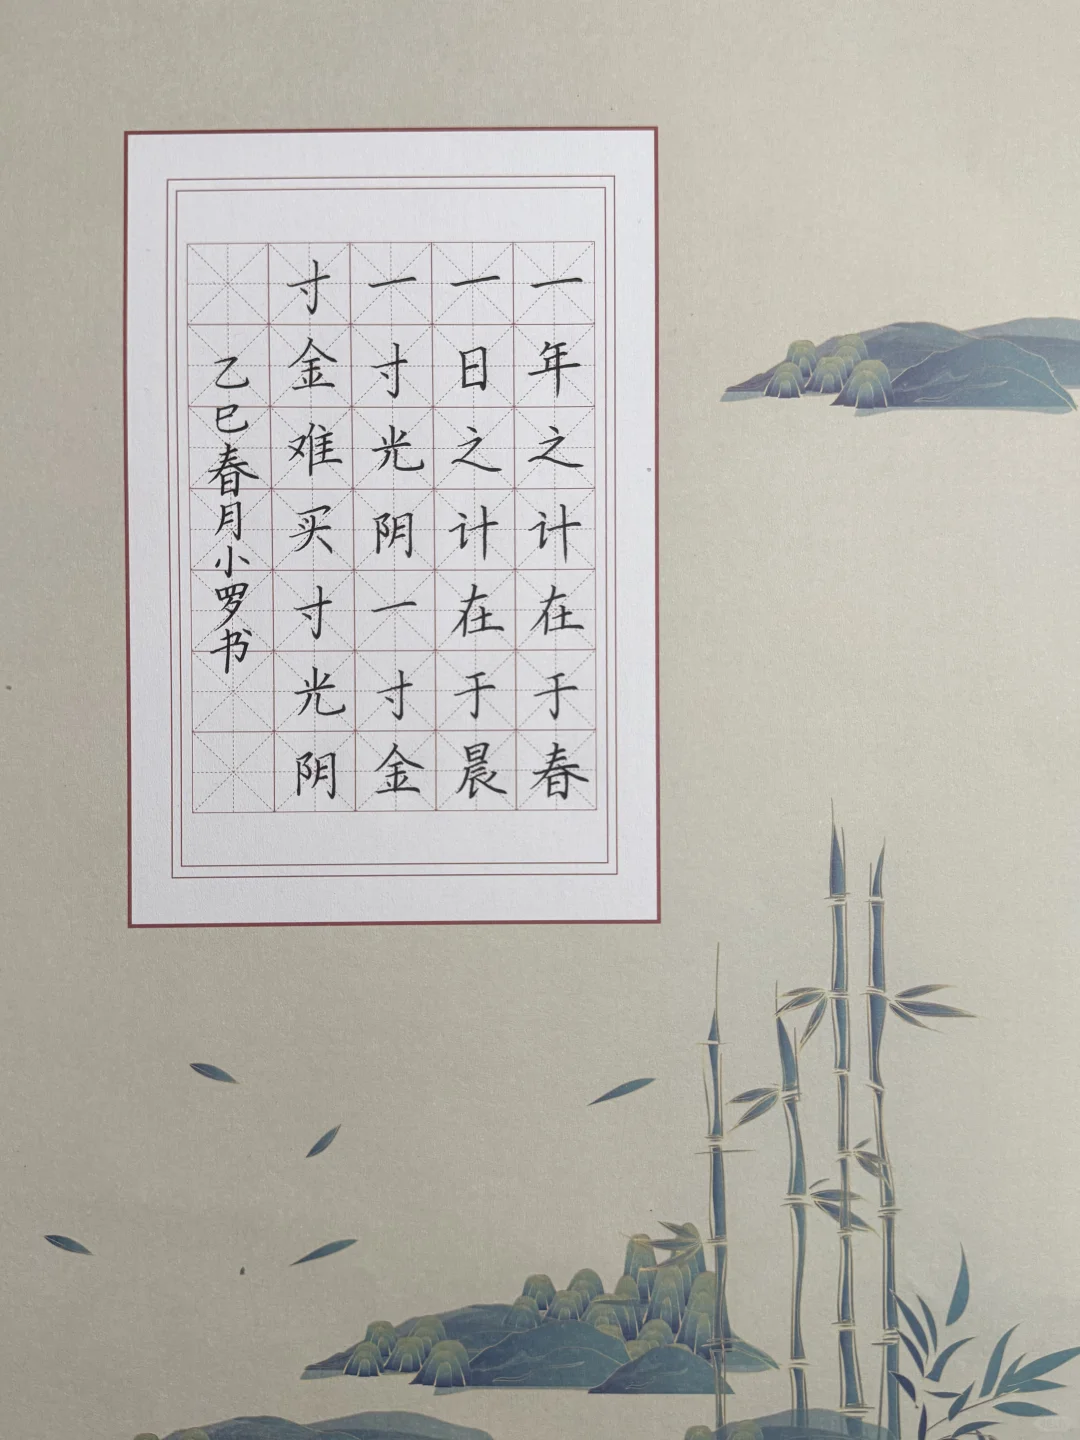 一年之计在于春
一日之计在于晨
一寸光阴一寸金
寸金难买寸光阴
乙巳春月小罗书